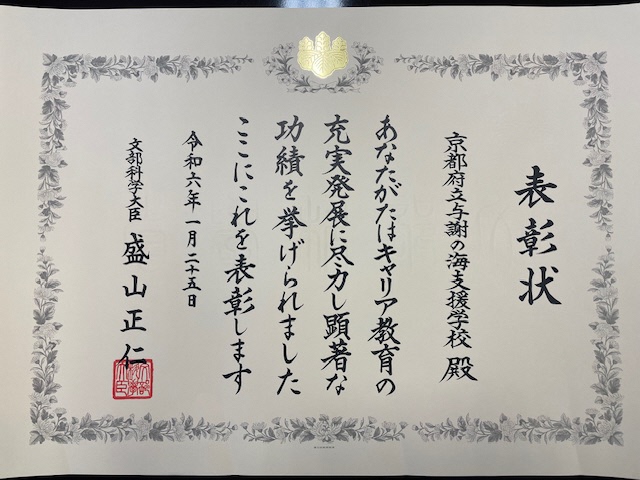 表彰状
京都府立与謝の海支援学校 殿
あなたがたはキャリア教育の
充実発展に尽力し顕著な
功績を挙げられました
ここにこれを表彰します
令和六年一月二十五日
文部科学大臣 盛山正仁